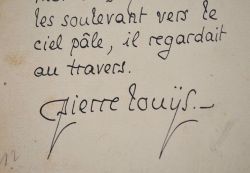 les soulevant vers le
ciel pâle, il regardait
au travers.
Pierre Louÿs.